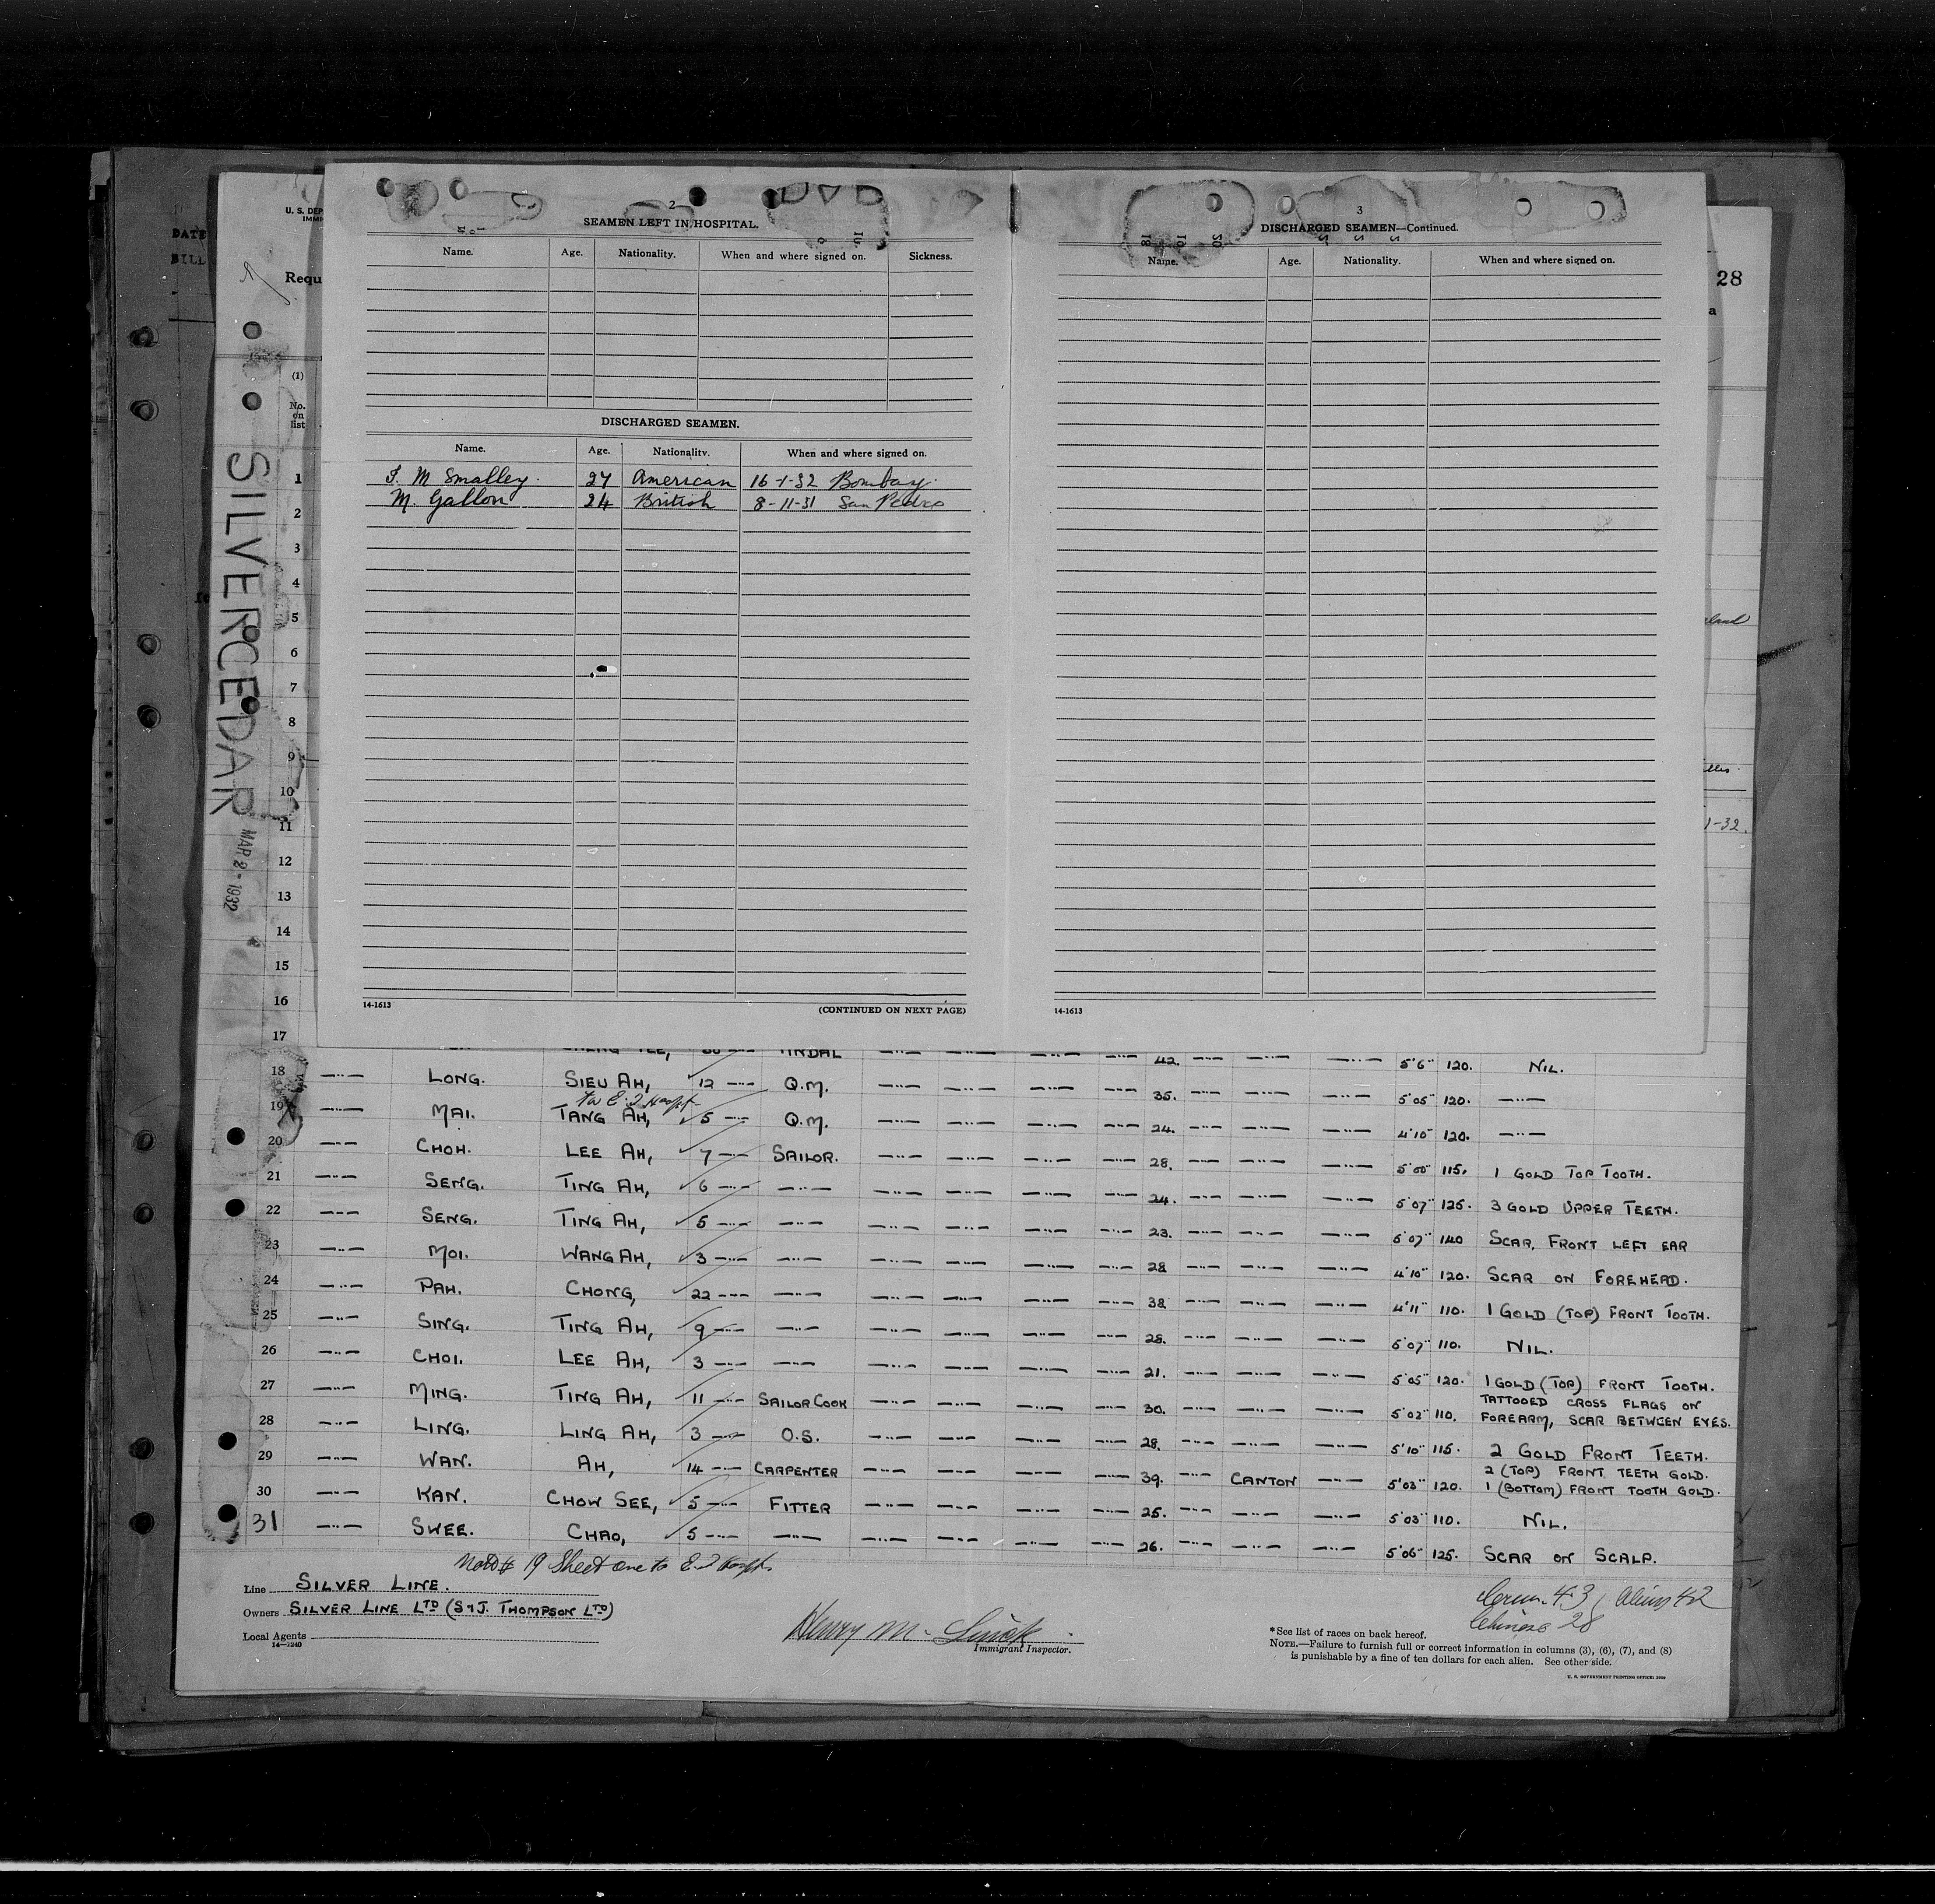 2
SEAMEN LEFT IN HOSPITAL.
Name. Age. Nationality. When and where signed on. Sickness.
DISCHARGED SEAMEN.
Name. Age. Nationality. When and where signed on.
F. M Smalley. 27 American 16-1-32 Bombay.
M. Gallon 24 British 8-11-31 San Pedro
14-1613
(CONTINUED ON NEXT PAGE)
3
DISCHARGED SEAMEN—Continued.
Name. Age. Nationality. When and where signed on.
14-1613
DATE
BILL
U. S. DEP
IMMI
Requ
28
a
(1)
No.
on
list
SILVERCEDAR
MAR 2-1932
eland
1-32.
1
2
3
4
5
6
7
8
9
10
11
12
13
14
15
16
17 TINDAL —··— —··— —··— —··— 42. —··— —··— —··— 5'6" 120. NIL.
18 —··— LONG. SIEU AH, 12 —··— Q.M. —··— —··— —··— —··— 35. —··— —··— —··— 5'05" 120. —··—
to E. I Hospt
19 —··— MAI. TANG AH, 5 —··— Q.M. —··— —··— —··— —··— 24. —··— —··— —··— 4'10" 120. —··—
20 —··— CHOH. LEE AH, 7 —··— SAILOR. —··— —··— —··— —··— 28. —··— —··— —··— 5'00" 115. 1 GOLD TOP TOOTH.
21 —··— SENG. TING AH, 6 —··— —··— —··— —··— —··— —··— 24. —··— —··— —··— 5'07" 125. 3 GOLD UPPER TEETH.
22 —··— SENG. TING AH, 5 —··— —··— —··— —··— —··— —··— 23. —··— —··— —··— 5'07" 140 SCAR, FRONT LEFT EAR
23 —··— MOI. WANG AH, 3 —··— —··— —··— —··— —··— —··— 28 —··— —··— —··— 4'10" 120. SCAR ON FOREHEAD.
24 —··— PAH. CHONG, 22 —··— —··— —··— —··— —··— —··— 38. —··— —··— —··— 4'11" 110. 1 GOLD (TOP) FRONT TOOTH.
25 —··— SING. TING AH, 9 —··— —··— —··— —··— —··— —··— 28. —··— —··— —··— 5'07" 110. NIL.
26 —··— CHOI. LEE AH, 3 —··— —··— —··— —··— —··— —··— 21. —··— —··— —··— 5'05" 120. 1 GOLD (TOP) FRONT TOOTH.
27 —··— MING. TING AH, 11 —··— SAILOR COOK —··— —··— —··— —··— 30. —··— —··— —··— 5'02" 110. TATTOOED CROSS FLAGS ON
FOREARM, SCAR BETWEEN EYES.
28 —··— LING. LING AH, 3 —··— O.S. —··— —··— —··— —··— 28. —··— —··— —··— 5'10" 115. 2 GOLD FRONT TEETH.
29 —··— WAN. AH, 14 —··— CARPENTER —··— —··— —··— —··— 39. —··— CANTON —··— 5'03" 120. 2 (TOP) FRONT TEETH GOLD.
1 (BOTTOM) FRONT TOOTH GOLD.
30 —··— KAN. CHOW SEE, 5 —··— FITTER —··— —··— —··— —··— 25. —··— —··— —··— 5'03" 110. NIL.
31 —··— SWEE. CHAO, 5 —··— —··— —··— —··— —··— —··— 26. —··— —··— —··— 5'06" 125. SCAR ON SCALP.
# 19 Sheet one to E I Hospt.
Line SILVER LINE.
Owners SILVER LINE LTD (S & J. THOMPSON LTD)
Local Agents
14—1240
Henry M.
Immigrant Inspector.
Crew 43 Aliens 42
Chinese 28
*See list of races on back hereof.
NOTE.—Failure to furnish full or correct information in columns (3), (6), (7), and (8)
is punishable by a fine of ten dollars for each alien. See other side.
U. S. GOVERNMENT PRINTING OFFICE: